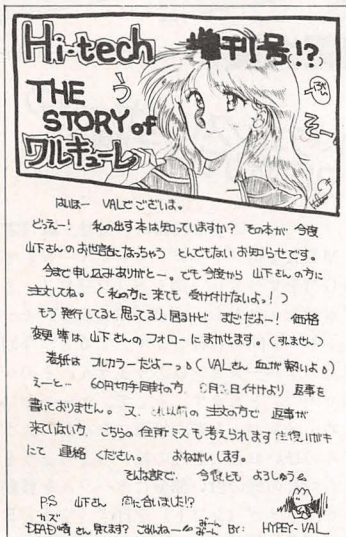 Hi-tech 増刊号!?
THE う
STORY of
ワルキューレ
そー
はいほー VALでございま。
どぅえー! 私の出す本は知っていますか? その本が 今度
山下さんのお世話になっちゃう とんでもない お知らせです。
今まで申し込みありがとー。でも今度から 山下さんの方に
注文してね。(私の方に来ても 受け付けないよっ!)
もう発行してると思ってる人居るけど まだだよー! 価格
変更等は 山下さんの フォローにまかせます。(すいません)
表紙は フルカラーだよーっ (VALさん 血が騒いよ)
えーと… 60円切手同封の方、 月 日付けより 返事を
書いておりません。又、これ以前の 注文の方で 返事が
来ていない方、こちらの 住所ミスも考えられます 往復ハガキ
にて 連絡 ください。 おねがいします。
そんな訳で、 今後とも よろしゅう
PS 山下さん 間に合いました!?
カズ
DEAD崎さん 見てます? ごめんねー みーん みーん BY: HYPEY-VAL